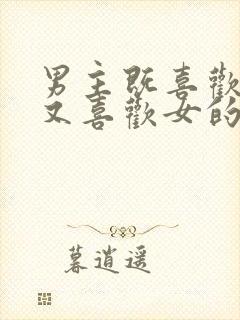 男主既喜歡
又喜歡女的
暮逍遥